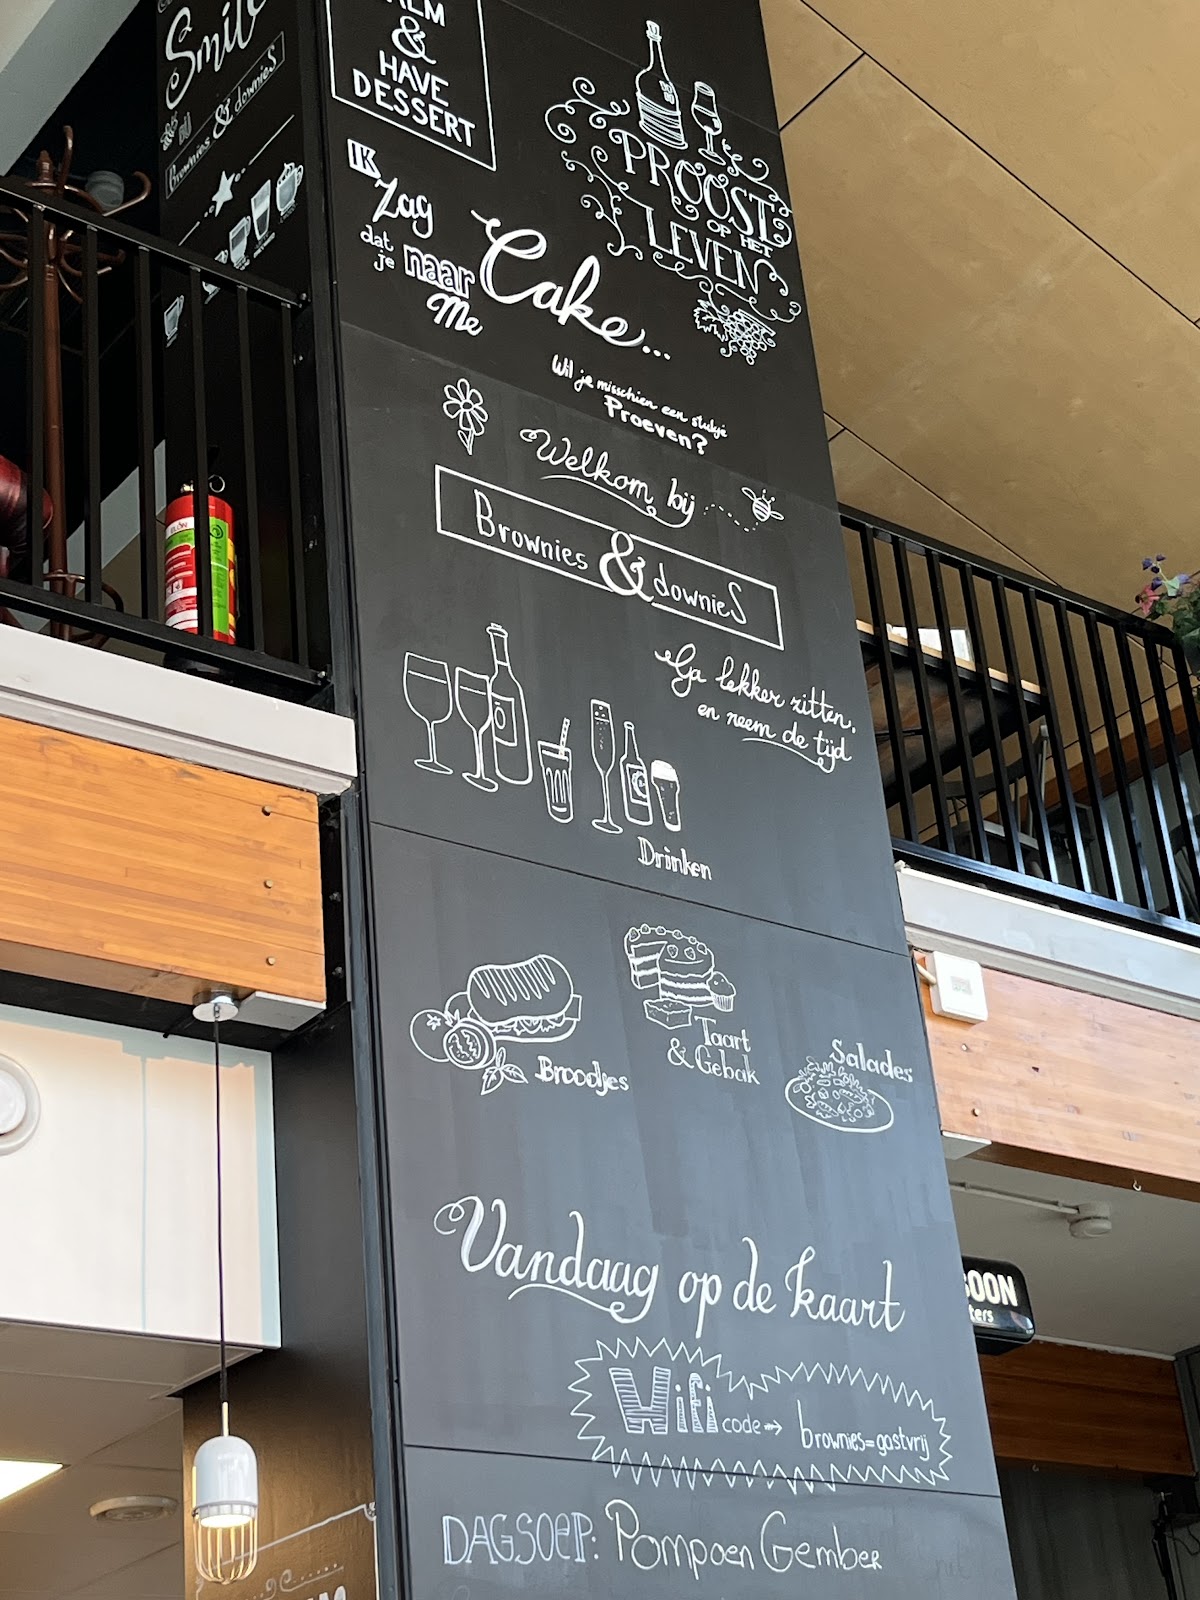 Smile
bij
Brownies & downieS
&
HAVE
DESSERT
PROOST
OP HET
LEVEN
IK
Zag
dat
je
naar
Me
Cake...
Wil je misschien een stukje
Proeven?
Welkom bij
Brownies & downieS
Ga lekker zitten,
en neem de tijd
Drinken
Broodjes
Taart
& Gebak
Salades
Vandaag op de kaart
Wifi code → brownies=gastvrij
DAGSOEP: Pompoen Gember